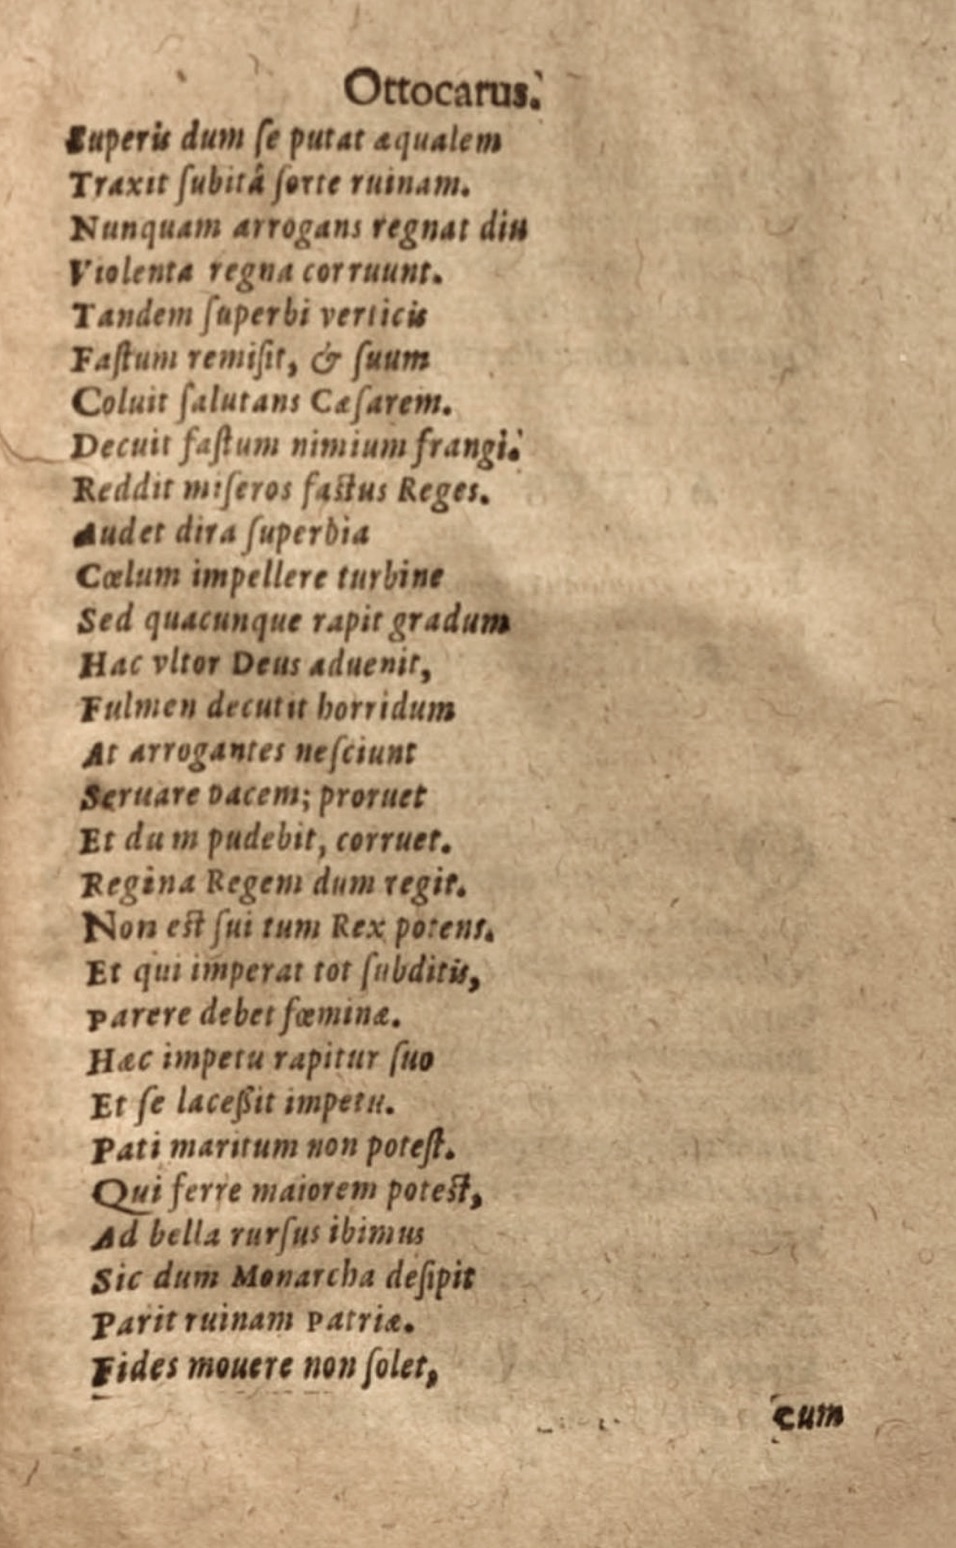 Ottocarus.
Superis dum ſe putat æqualem
Traxit ſubitâ ſorte ruinam.
Nunquam arrogans regnat diu
Violenta regna corruunt.
Tandem ſuperbi verticis
Faſtum remiſit, & ſuum
Coluit ſalutans Cæſarem.
Decuit faſtum nimium frangi.
Reddit miſeros faſtus Reges.
Audet dira ſuperbia
Cœlum impellere turbine
Sed quacunque rapit gradum
Hac vltor Deus aduenit,
Fulmen decutit horridum
At arrogantes neſciunt
Seruare pacem; proruet
Et dum pudebit, corruet.
Regina Regem dum regit.
Non eſt ſui tum Rex potens.
Et qui imperat tot ſubditis,
Parere debet fœminæ.
Hæc impetu rapitur ſuo
Et ſe laceſsit impetu.
Pati maritum non poteſt.
Qui ferre maiorem poteſt,
Ad bella rurſus ibimus
Sic dum Monarcha deſipit
Parit ruinam Patriæ.
Fides mouere non ſolet,
cum